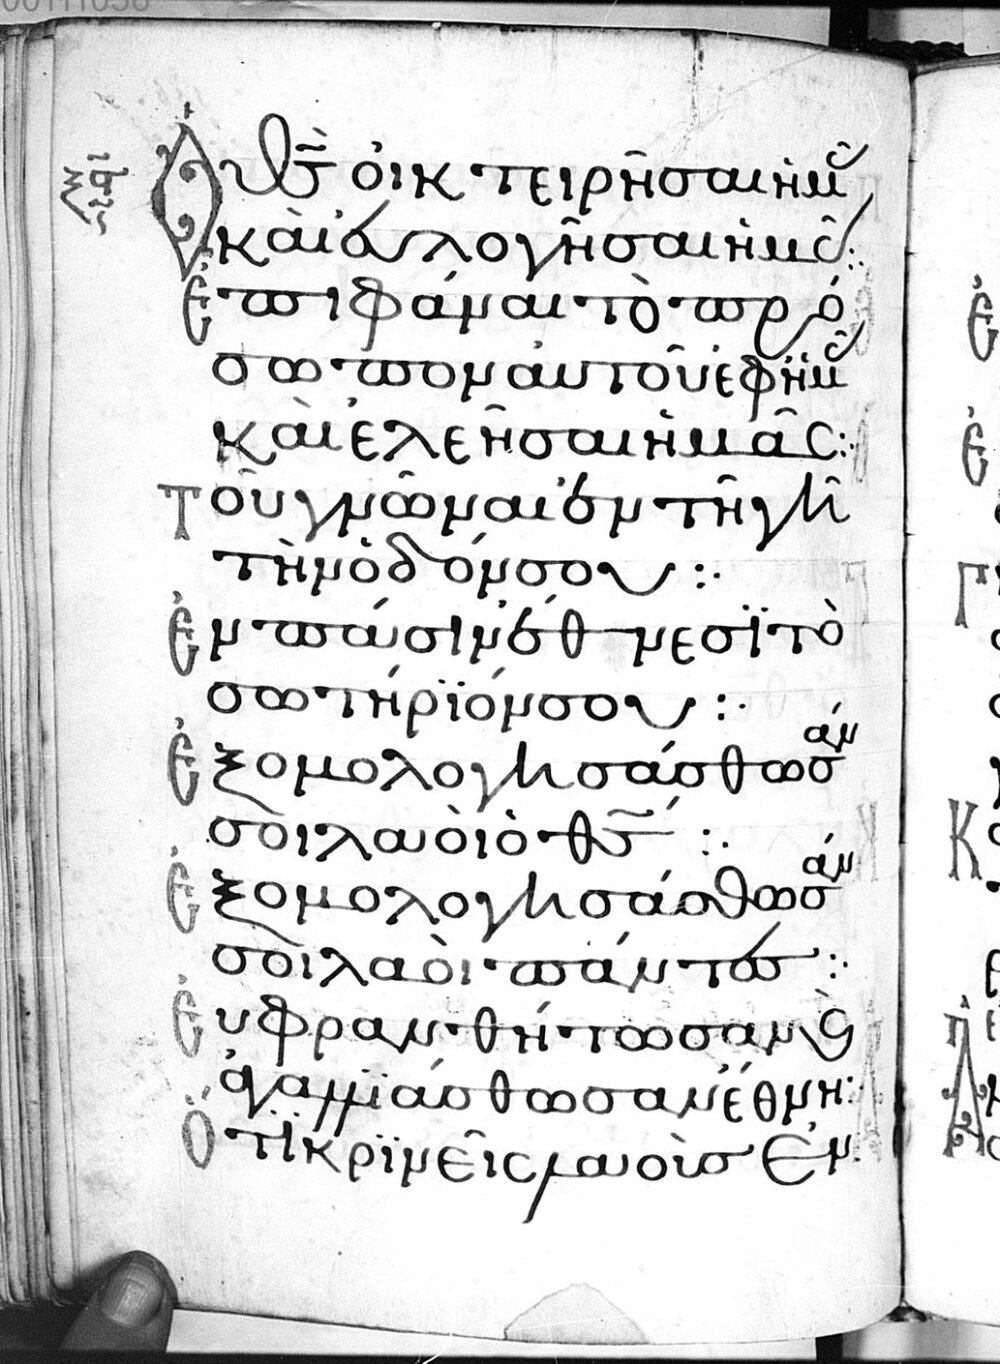 Ὁ θς̅ οἰκτειρῆσαι ἡμᾶς
καὶ εὐλογῆσαι ἡμᾶς:
ἐπιφάναι τὸ πρό
σωπον αὐτοῦ ἐφ ἡμᾶς
καὶ ἐλεῆσαι ἡμᾶς:
τοῦ γνῶναι ἐν τῆ γῆ
τὴν ὁδόν σου :·
ἐν πάσιν ἔθνεσϊ τὸ
σωτήρϊόν σου :·
ἐξομολογησάσθωσάν
σοι λαοὶ ὁ θς̅ :·
ἐξομολογησάσθωσάν
σοι λαοὶ πάντες :·
ἐυφρανθήτωσαν κὰι
ἀγαλλϊάσθωσαν ἔθνη:
ὅτϊ κρϊνεῖς λαοὺς ἐν